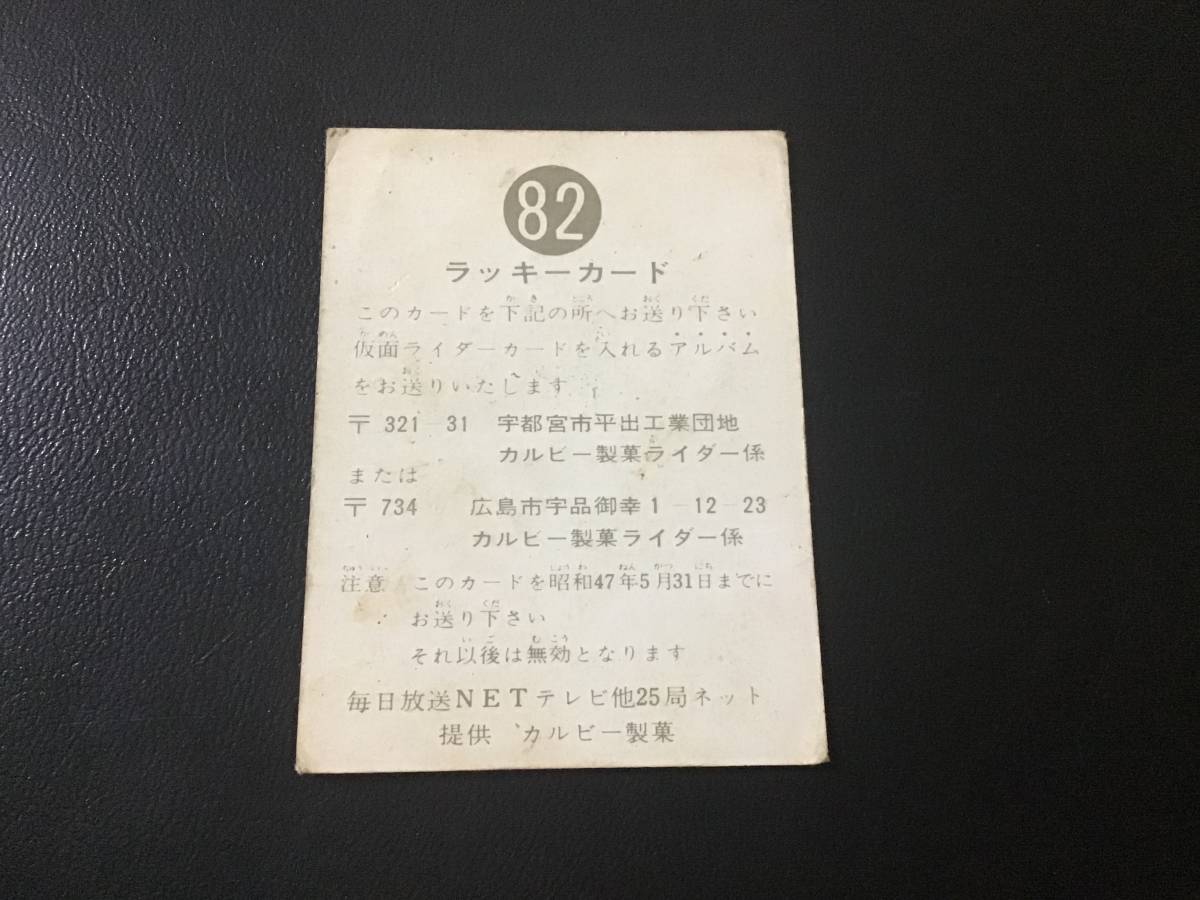 82
ラッキーカード
このカードを下記の所へお送り下さい
仮面ライダーカードを入れるアルバム
をお送りいたします
〒 321-31 宇都宮市平出工業団地
カルビー製菓ライダー係
または
〒 734 広島市宇品御幸1-12-23
カルビー製菓ライダー係
注意 このカードを昭和47年5月31日までに
お送り下さい
それ以後は無効となります
毎日放送NETテレビ他25局ネット
提供 カルビー製菓